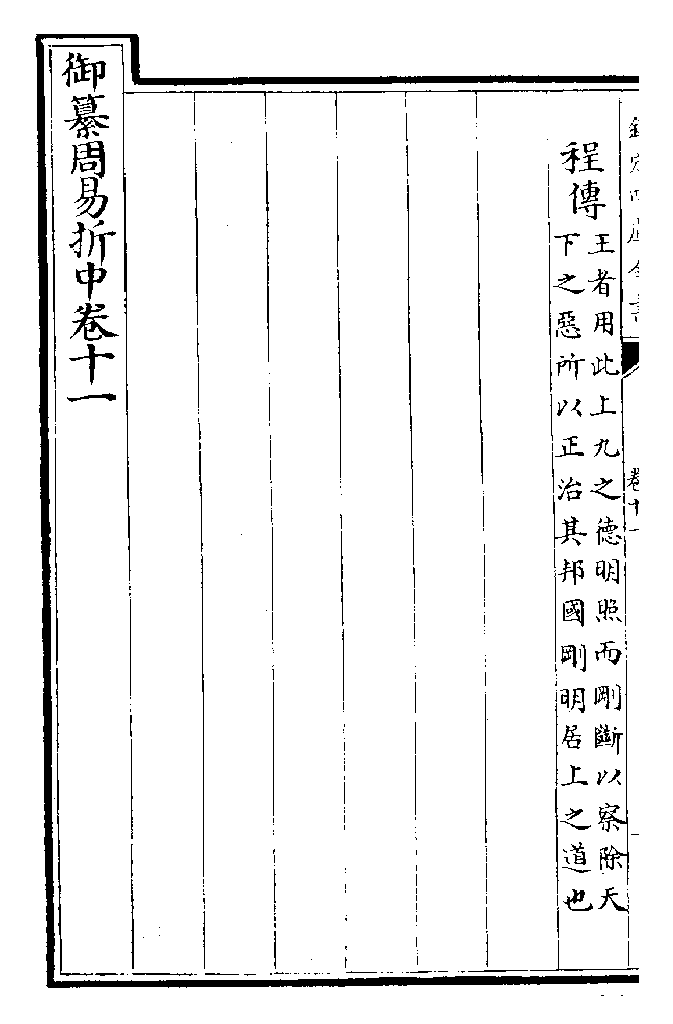 欽定四庫全書
卷十一
程傳
王者用此上九之德明照而剛斷以察除天
下之惡所以正治其邦國剛明居上之道也
御纂周易折中卷十一